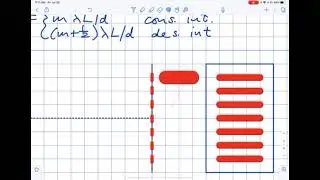 = { m λ L/d cons. int.
((m+½) λ L/d des. int